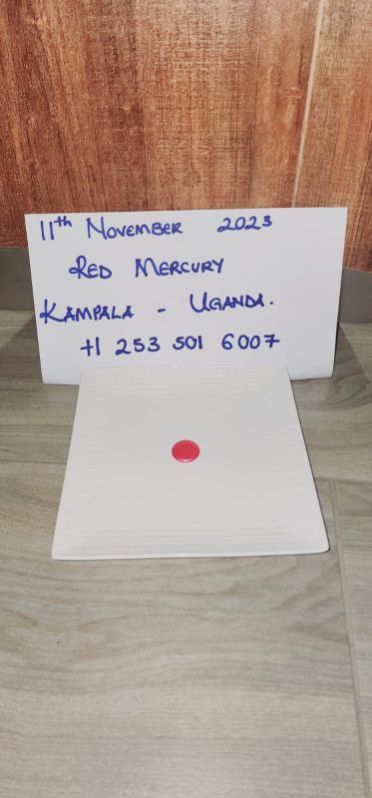 11th NOVEMBER 2023
RED MERCURY
KAMPALA - UGANDA.
+1 253 501 6007